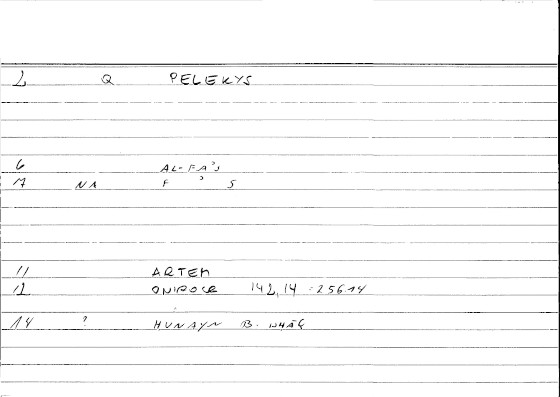 2 Q PELEKYS
6 AL-FA'S
17 NA F ' S
11 ARTEM
12 ONIROCR 142,14 = 256 14
14 ? HUNAYN B.